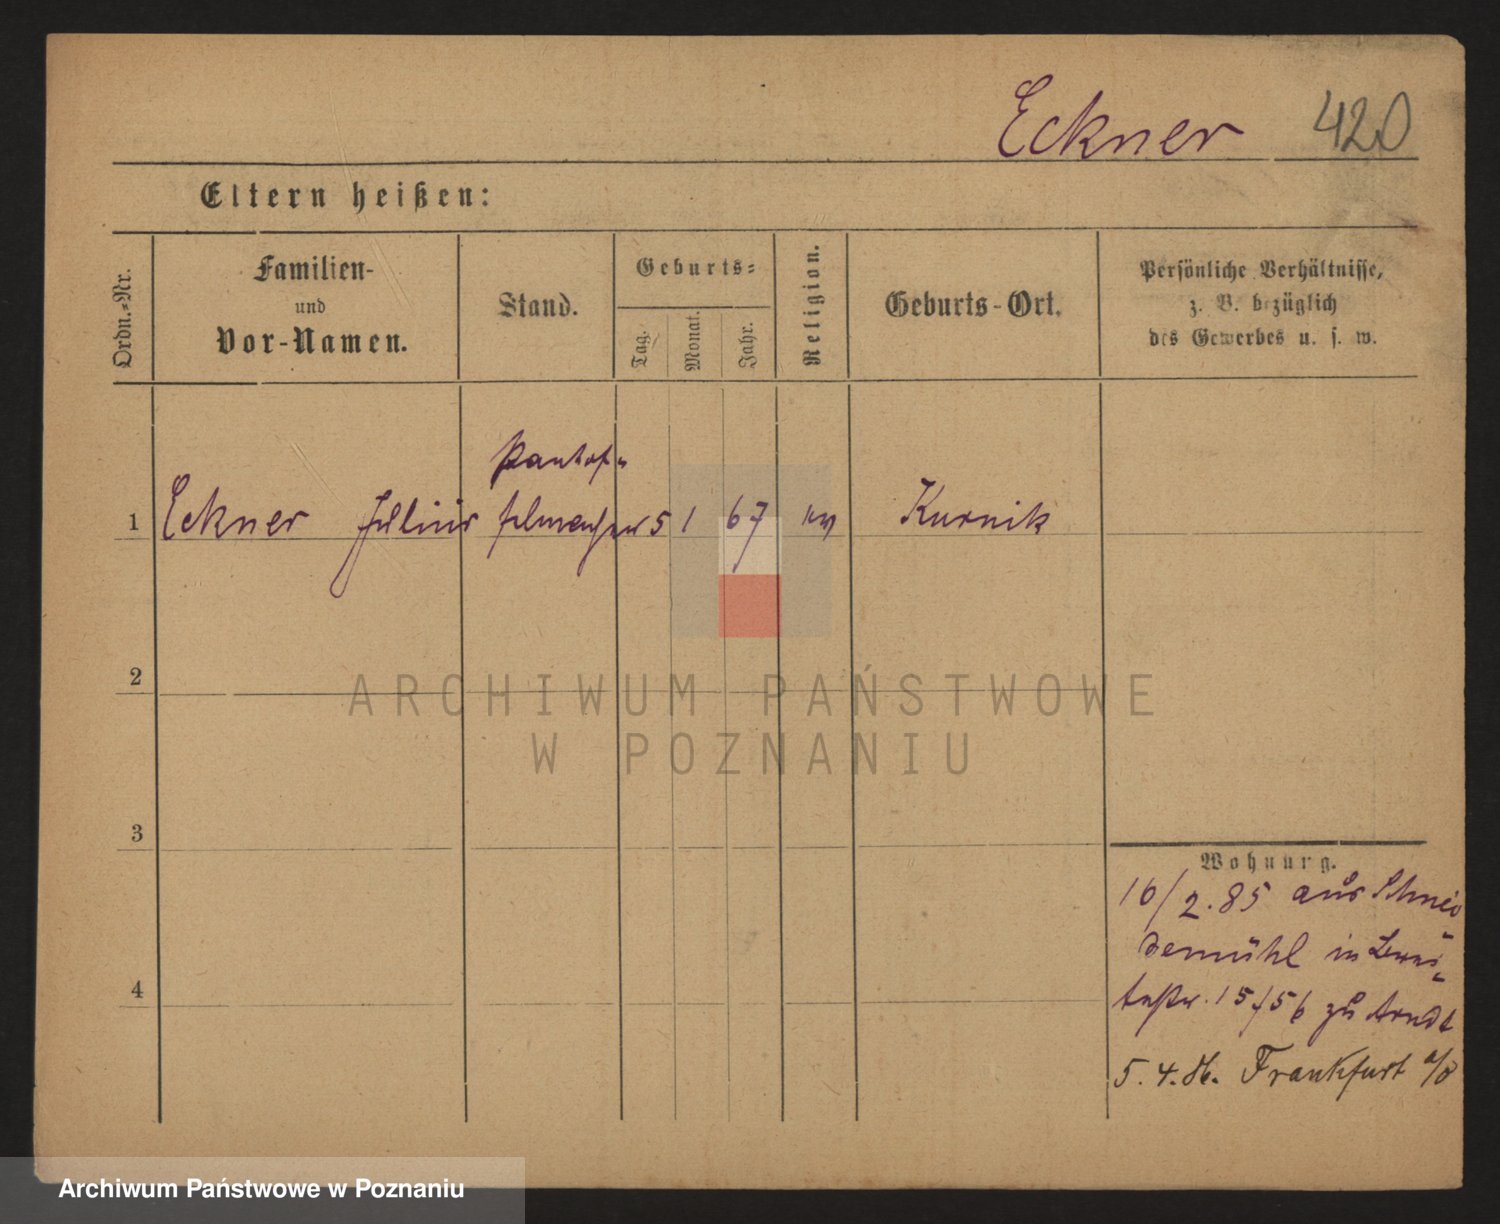 Eckner 420
Eltern heißen:
Ordn.-Nr.
Familien-
und
Vor-Namen.
Stand.
Geburts-
Tag.
Monat.
Jahr.
Religion.
Geburts-Ort.
Persönliche Verhältnisse,
z. B. bezüglich
des Gewerbes u. s. w.
Pantof-
1 Eckner Julius felmacher 5 1 67 ev Kurnik
2
ARCHIWUM PAŃSTWOWE
W POZNANIU
3
Wohnung.
16/2.85 aus Schnei
demühl in
15/56 zu Arndt
4
5.4.86. Frankfurt a/O
Archiwum Państwowe w Poznaniu